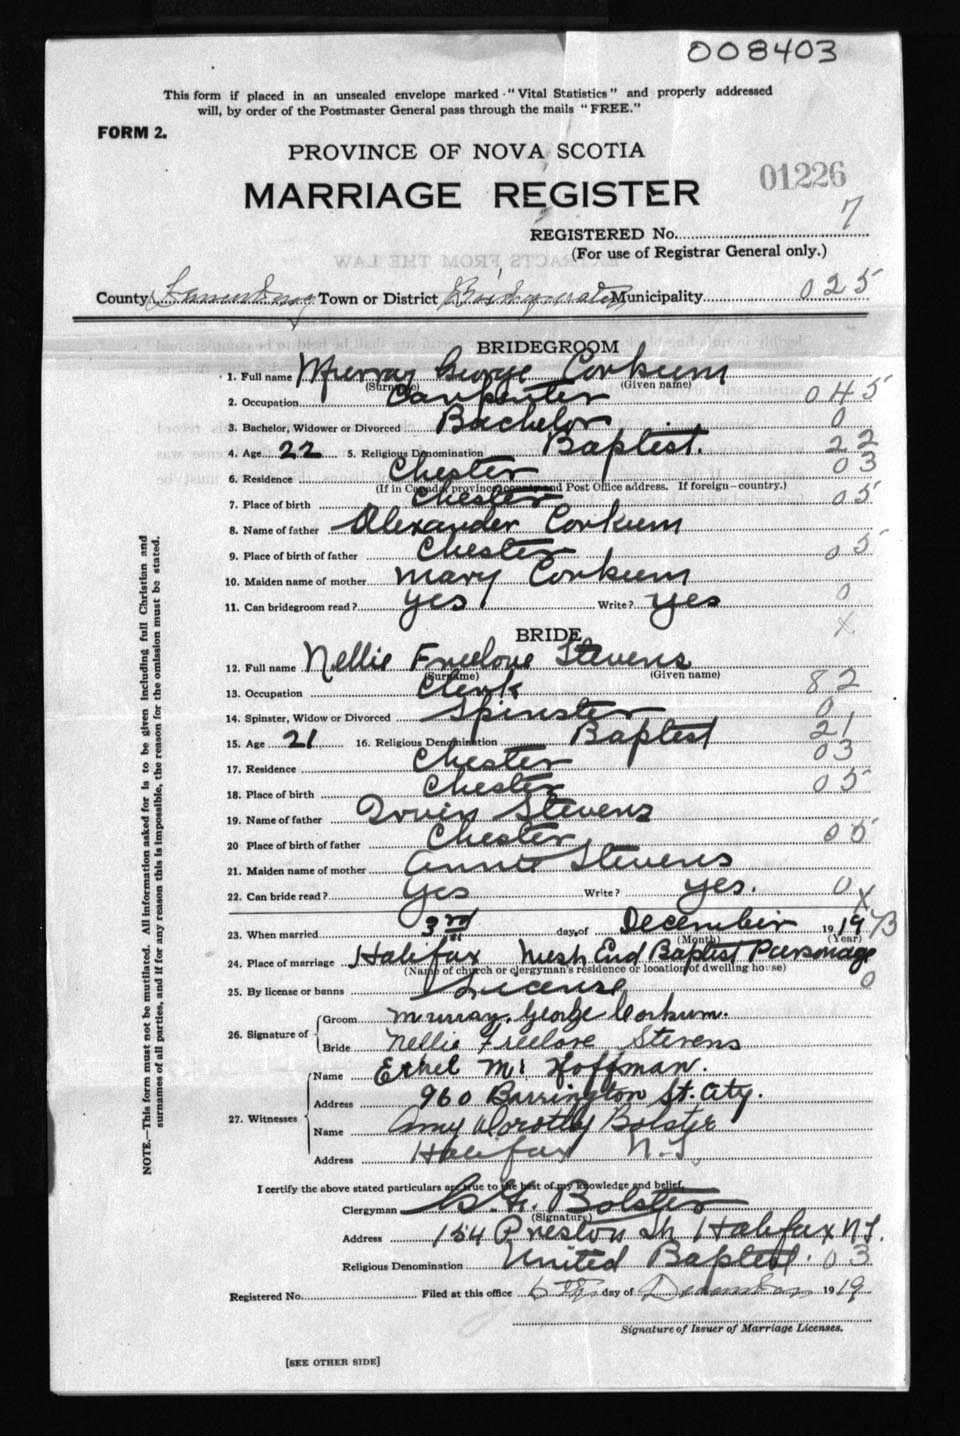 008403
This form if placed in an unsealed envelope marked "Vital Statistics" and properly addressed
will, by order of the Postmaster General pass through the mails "FREE."
FORM 2.
PROVINCE OF NOVA SCOTIA
01226
MARRIAGE REGISTER
7
REGISTERED No.
(For use of Registrar General only.)
EXTRACTS FROM THE LAW
County Lunenburg Town or District Bridgewater Municipality 025
BRIDEGROOM
1. Full name Murray George Corkum
(Surname) (Given name)
2. Occupation Carpenter 045
3. Bachelor, Widower or Divorced Bachelor 0
4. Age 22 5. Religious Denomination Baptist. 22
6. Residence Chester 03
(If in Canada, province, county and Post Office address. If foreign—country.)
7. Place of birth Chester 05
8. Name of father Alexander Corkum
9. Place of birth of father Chester 05
10. Maiden name of mother Mary Corkum
11. Can bridegroom read? yes Write? yes 0
X
BRIDE
12. Full name Nellie Freelove Stevens
(Surname) (Given name)
13. Occupation Clerk 82
14. Spinster, Widow or Divorced Spinster 0
15. Age 21 16. Religious Denomination Baptist 21
17. Residence Chester 03
18. Place of birth Chester 05
19. Name of father Irvin Stevens
20 Place of birth of father Chester 05
21. Maiden name of mother Annie Stevens
22. Can bride read? Yes Write? yes. 0 X
23. When married 3rd day of December 1919
(Month) (Year)
24. Place of marriage Halifax West End Baptist Parsonage
(Name of church or clergyman's residence or location of dwelling house)
25. By license or banns License 0
26. Signature of Groom Murray. George Corkum.
Bride Nellie Freelove Stevens
27. Witnesses Name Ethel M. Hoffman.
Address 960 Barrington St. City.
Name Amy Dorothy Bolster
Address Halifax N.S.
I certify the above stated particulars are true to the best of my knowledge and belief.
Clergyman Bolster
(Signature)
Address 154 Preston St Halifax N.S.
Religious Denomination United Baptist. 03
Registered No. Filed at this office 6th day of December 1919
Signature of Issuer of Marriage Licenses.
[SEE OTHER SIDE]
NOTE.—This form must not be mutilated. All information asked for is to be given including full Christian and
surnames of all parties, and if for any reason this is impossible, the reason for the omission must be stated.